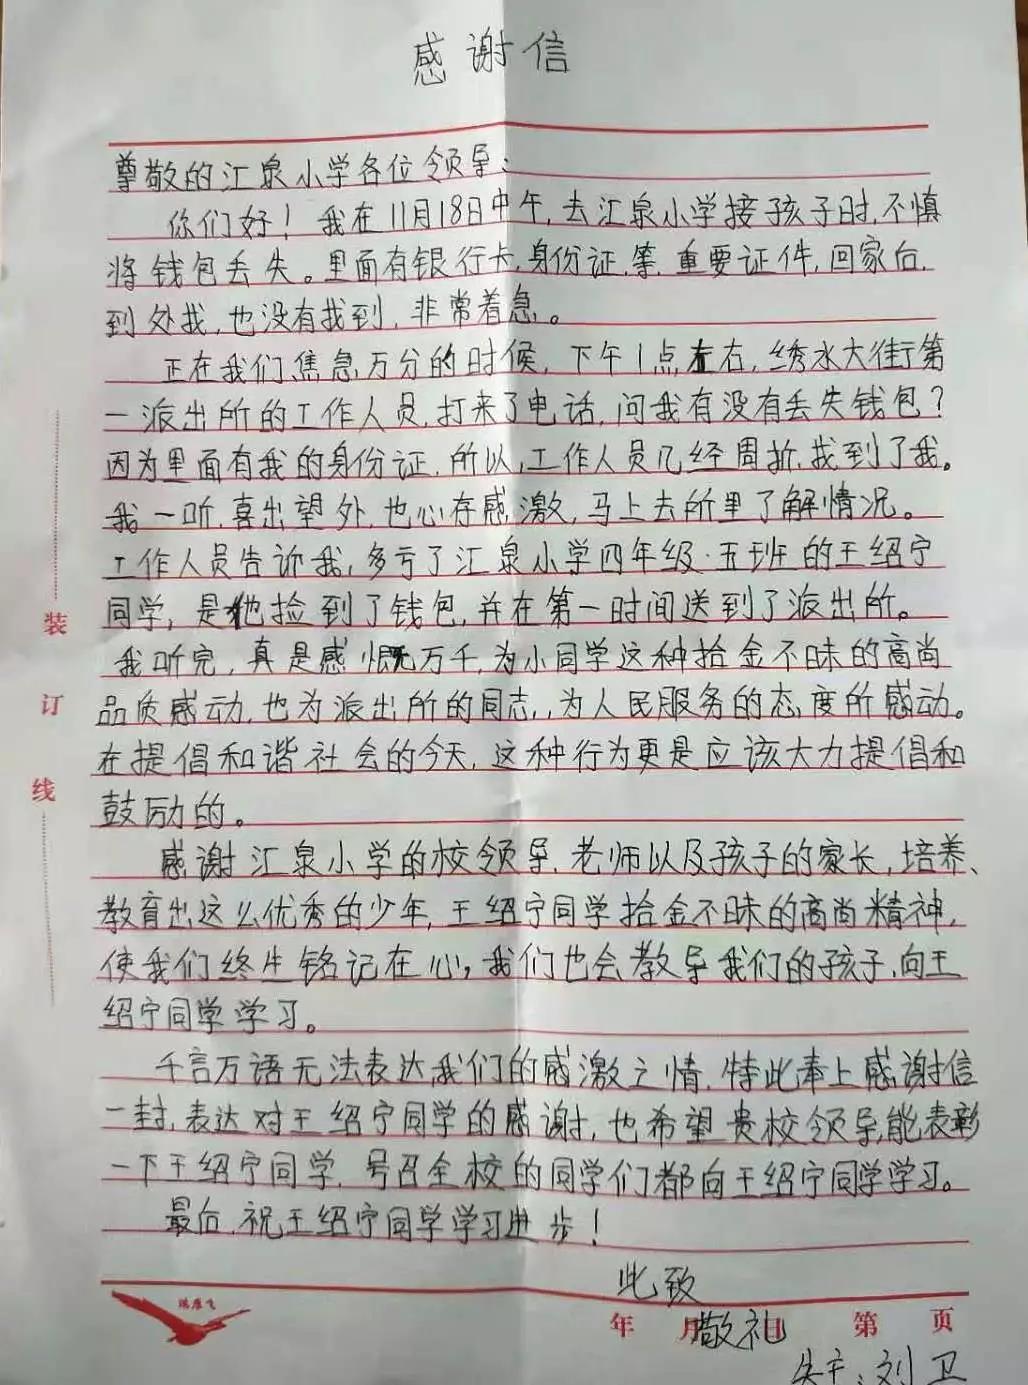 感谢信
尊敬的江泉小学各位领导:
你们好!我在11月18日中午,去江泉小学接孩子时,不慎
将钱包丢失。里面有银行卡,身份证,等,重要证件,回家后,
到处找,也没有找到,非常着急。
正在我们焦急万分的时候,下午1点左右,绣水大街第
一派出所的工作人员,打来了电话,问我有没有丢失钱包?
因为里面有我的身份证,所以,工作人员几经周折,找到了我。
我一听,喜出望外,也心存感激,马上去所里了解情况。
工作人员告诉我,多亏了江泉小学四年级·五班的王绍宁
同学,是他捡到了钱包,并在第一时间送到了派出所。
我听完,真是感慨万千,为小同学这种拾金不昧的高尚
品质感动,也为派出所的同志,,为人民服务的态度所感动。
在提倡和谐社会的今天,这种行为更是应该大力提倡和
鼓励的。
感谢江泉小学的校领导,老师以及孩子的家长,培养、
教育出这么优秀的少年,王绍宁同学拾金不昧的高尚精神,
使我们终生铭记在心,我们也会教导我们的孩子,向王
绍宁同学学习。
千言万语无法表达,我们的感激之情,特此奉上感谢信
一封,表达对王绍宁同学的感谢,也希望贵校领导,能表彰
一下王绍宁同学,号召全校的同学们都向王绍宁同学学习。
最后,祝王绍宁同学学习进步!
此致
敬礼
失主:刘卫
装
订
线
年 月 日 第 页